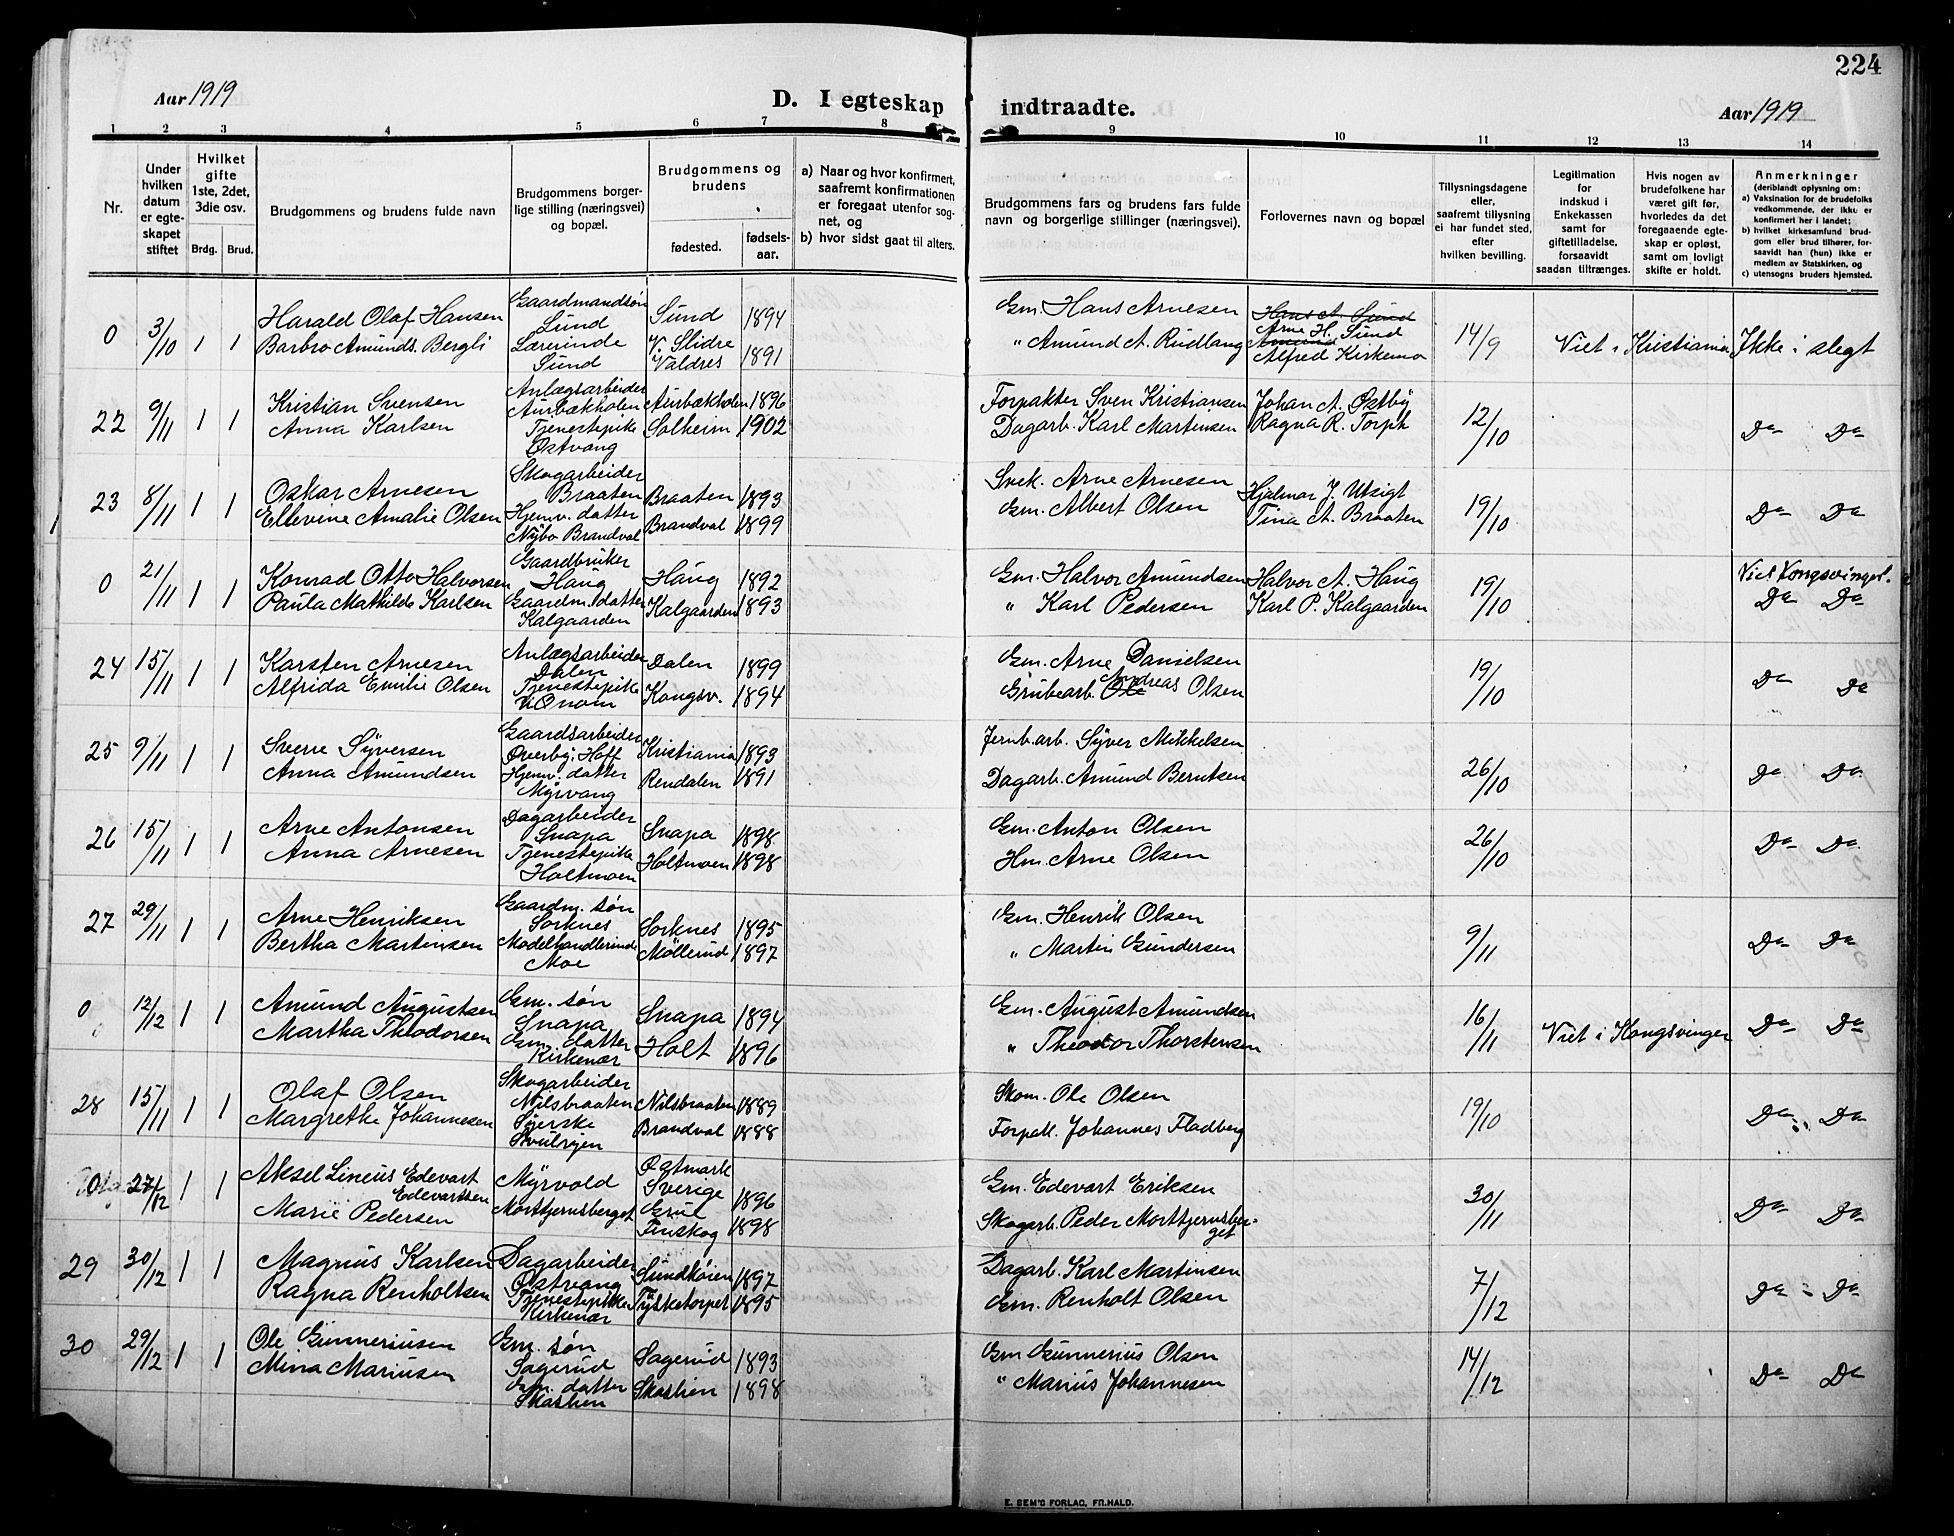 224
Aar 1919
D. I egteskap indtraadte.
Aar 1919
1 2 3 4 5 6 7 8 9 10 11 12 13 14
Nr.
Under hvilken datum er egteskapet stiftet
Hvilket gifte 1ste, 2det, 3die osv.
Brdg. Brud.
Brudgommens og brudens fulde navn
Brudgommens borgerlige stilling (næringsvei) og bopæl.
Brudgommens og brudens
fødested.
fødselsaar.
a) Naar og hvor konfirmert, saafremt konfirmationen er foregaat utenfor sognet, og
b) hvor sidst gaat til alters.
Brudgommens fars og brudens fars fulde navn og borgerlige stillinger (næringsvei).
Forlovernes navn og bopæl
Tillysningsdagene eller, saafremt tillysning ei har fundet sted, efter hvilken bevilling.
Legitimation for indskud i Enkekassen samt for giftetilladelse, forsaavidt saadan tiltrænges.
Hvis nogen av brudefolkene har været gift før, hvorledes da det foregaaende egteskap er opløst, samt om lovligt skifte er holdt.
Anmerkninger (deriblandt oplysning om:
a) Vaksination for de brudefolks vedkommende, der ikke er konfirmert her i landet;
b) hvilket kirkesamfund brudgom eller brud tilhører, forsaavidt han (hun) ikke er medlem av Statskirken, og
c) utensogns bruders hjemsted.
0 3/10 1 1 Harald Olaf Hansen Gaardmandsøn Lund Sund 1894 Gm. Hans Arnesen Hans A. Sund Arne H. Sund 14/9 Viet i Kristiania Ikke i slegt
Barbro Amunds. Bergli Lærerinde Sund V. Slidre Valdres 1891 " Amund A. Rudlang Amund Alfred Kirkemo
22 9/11 1 1 Kristian Svensen Anlægsarbeider Aurbækholen Aurbækholen 1896 Forpakter Sven Kristiansen Johan A. Østby 12/10 Do Do
Anna Karlsen Tjenestepike Østvang Solheim 1902 Dagarb. Karl Martinsen Ragna R. Torph
23 8/11 1 1 Oskar Arnesen Skogarbeider Braaten Braaten 1893 Svek. Arne Arnesen Hjalmar J. Utsigt 19/10 Do Do
Ellevine Amalie Olsen Hjemv. datter Nybo Brandval Brandval 1899 Gm. Albert Olsen Tina A. Braaten
0 21/11 1 1 Konrad Otto Halvorsen Gaardbruker Haug Haug 1892 Gm. Halvor Amundsen Halvor A. Haug 19/10 Viet Kongsvinger.
Paula Mathilde Karlsen Gaardm. datter Kalgaarden Kalgaarden 1893 " Karl Pedersen Karl P. Kalgaarden Do Do
24 15/11 1 1 Karsten Arnesen Anlægsarbeider Dalen Dalen 1899 Gm. Arne Danielsen 19/10 Do Do
Alfrida Emilie Olsen Tjenestepike Kongsv. 1894 Grubearb. Ole Andreas Olsen
25 9/11 1 1 Sverre Syversen Gaardsarbeider Overby, Hoff Kristiania 1893 Jernb.arb. Syver Mikkelsen 26/10 Do Do
Anna Amundsen Hjemv. datter Myrvang Rendalen 1891 Dagarb. Amund Berntsen
26 15/11 1 1 Arne Antonsen Dagarbeider Snapa Snapa 1898 Gm. Anton Olsen 26/10 Do Do
Anna Arnesen Tjenestepike Holtmoen Holtmoen 1898 Hm. Arne Olsen
27 29/11 1 1 Arne Henriksen Gaardm. søn Sorknes Sorknes 1895 Gm. Henrik Olsen 9/11 Do Do
Bertha Martinsen Modehandlerinde Moe Møllerud 1897 " Martin Gundersen
0 12/12 1 1 Amund Augustsen Gm. søn Snapa Snapa 1894 Gm. August Amundsen 16/11 Viet i Kongsvinger Do Do
Martha Theodorsen Gm. datter Kirkenær Holt 1896 " Theodor Thorstensen
28 15/11 1 1 Olaf Olsen Skogarbeider Nilsbraaten Nilsbraaten 1889 Skom. Ole Olsen 19/10 Do Do
Margrethe Johannesen Syerske Brandval 1888 Forpakt. Johannes Fladberg
0 27/12 1 1 Aksel Lineus Edevart Edevartsen Myrvold Østmark Sverige 1896 Gm. Edevart Eriksen 30/11 Do Do
Marie Pedersen Morttjernsberget Grue Finskog 1898 Skogarb. Peder Morttjernsberget
29 30/12 1 1 Magnus Karlsen Dagarbeider Østvang Sundkøien 1897 Dagarb. Karl Martinsen 7/12 Do Do
Ragna Renholtsen Tjenestepike Kirkenær Tysketorpet 1895 Gm. Renholt Olsen
30 29/12 1 1 Ole Gunneriusen Gm. søn Sagerud Sagerud 1893 Gm Gunnerius Olsen 14/12 Do Do
Mina Mariusen Gm. datter Skaslien Skaslien 1898 " Marius Johannesen
E. SEM'S FORLAG, FR.HALD.